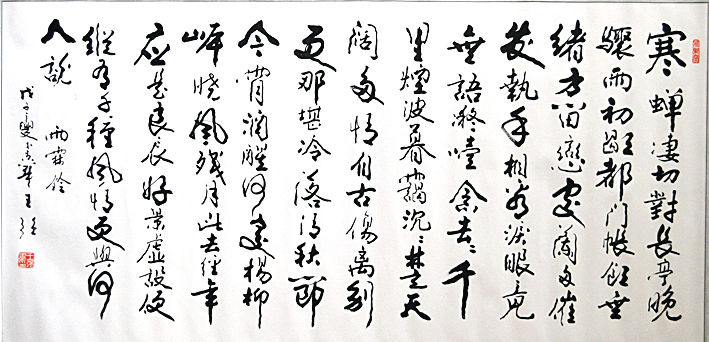 寒蟬凄切對長亭晚
驟雨初歇都門帳飲無
緒方留戀處蘭舟催
發執手相看淚眼竟
無語凝噎念去去千
里煙波暮靄沉沉楚天
闊多情自古傷離別
更那堪冷落清秋節
今宵酒醒何處楊柳
岸曉風殘月此去經年
應是良辰好景虛設便
縱有千種風情更與何
人說 雨霖鈴
戊子夏 王